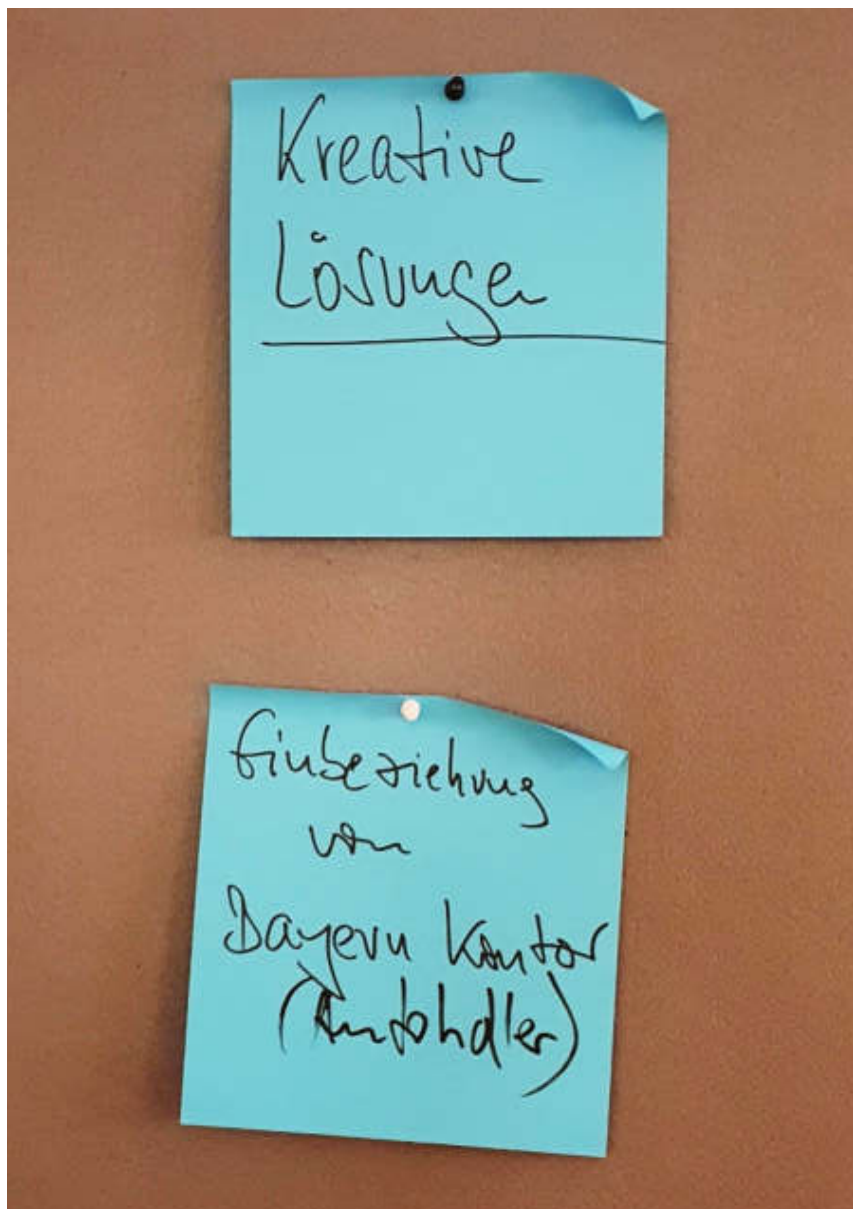 Kreative
Lösungen
Einbeziehung
von
Bayern Kontor
(Autohdler)